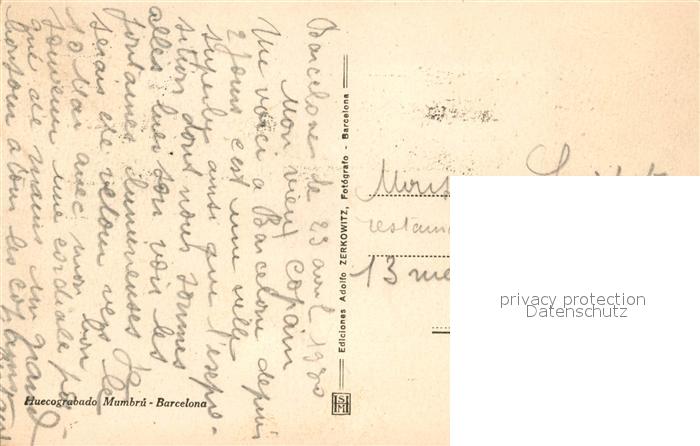 Barcelone de 23 avril 1930
Mon vieux copain
Me voici a Barcelone depuis
2 jours c'est une ville
superbe ainsi que l'expo-
sition dont nous sommes
allés hier soir voir les
fontaines lumineuses Je
serais de retour vers le
10 Mai avec mon bon
souvenir une cordiale
de mains un grand
bonjour a tous les copains
Ediciones Adolfo ZERKOWITZ, Fotógrafo - Barcelona
Huecograbado Mumbrú - Barcelona
Mons
restau
13 rue
privacy protection
Datenschutz